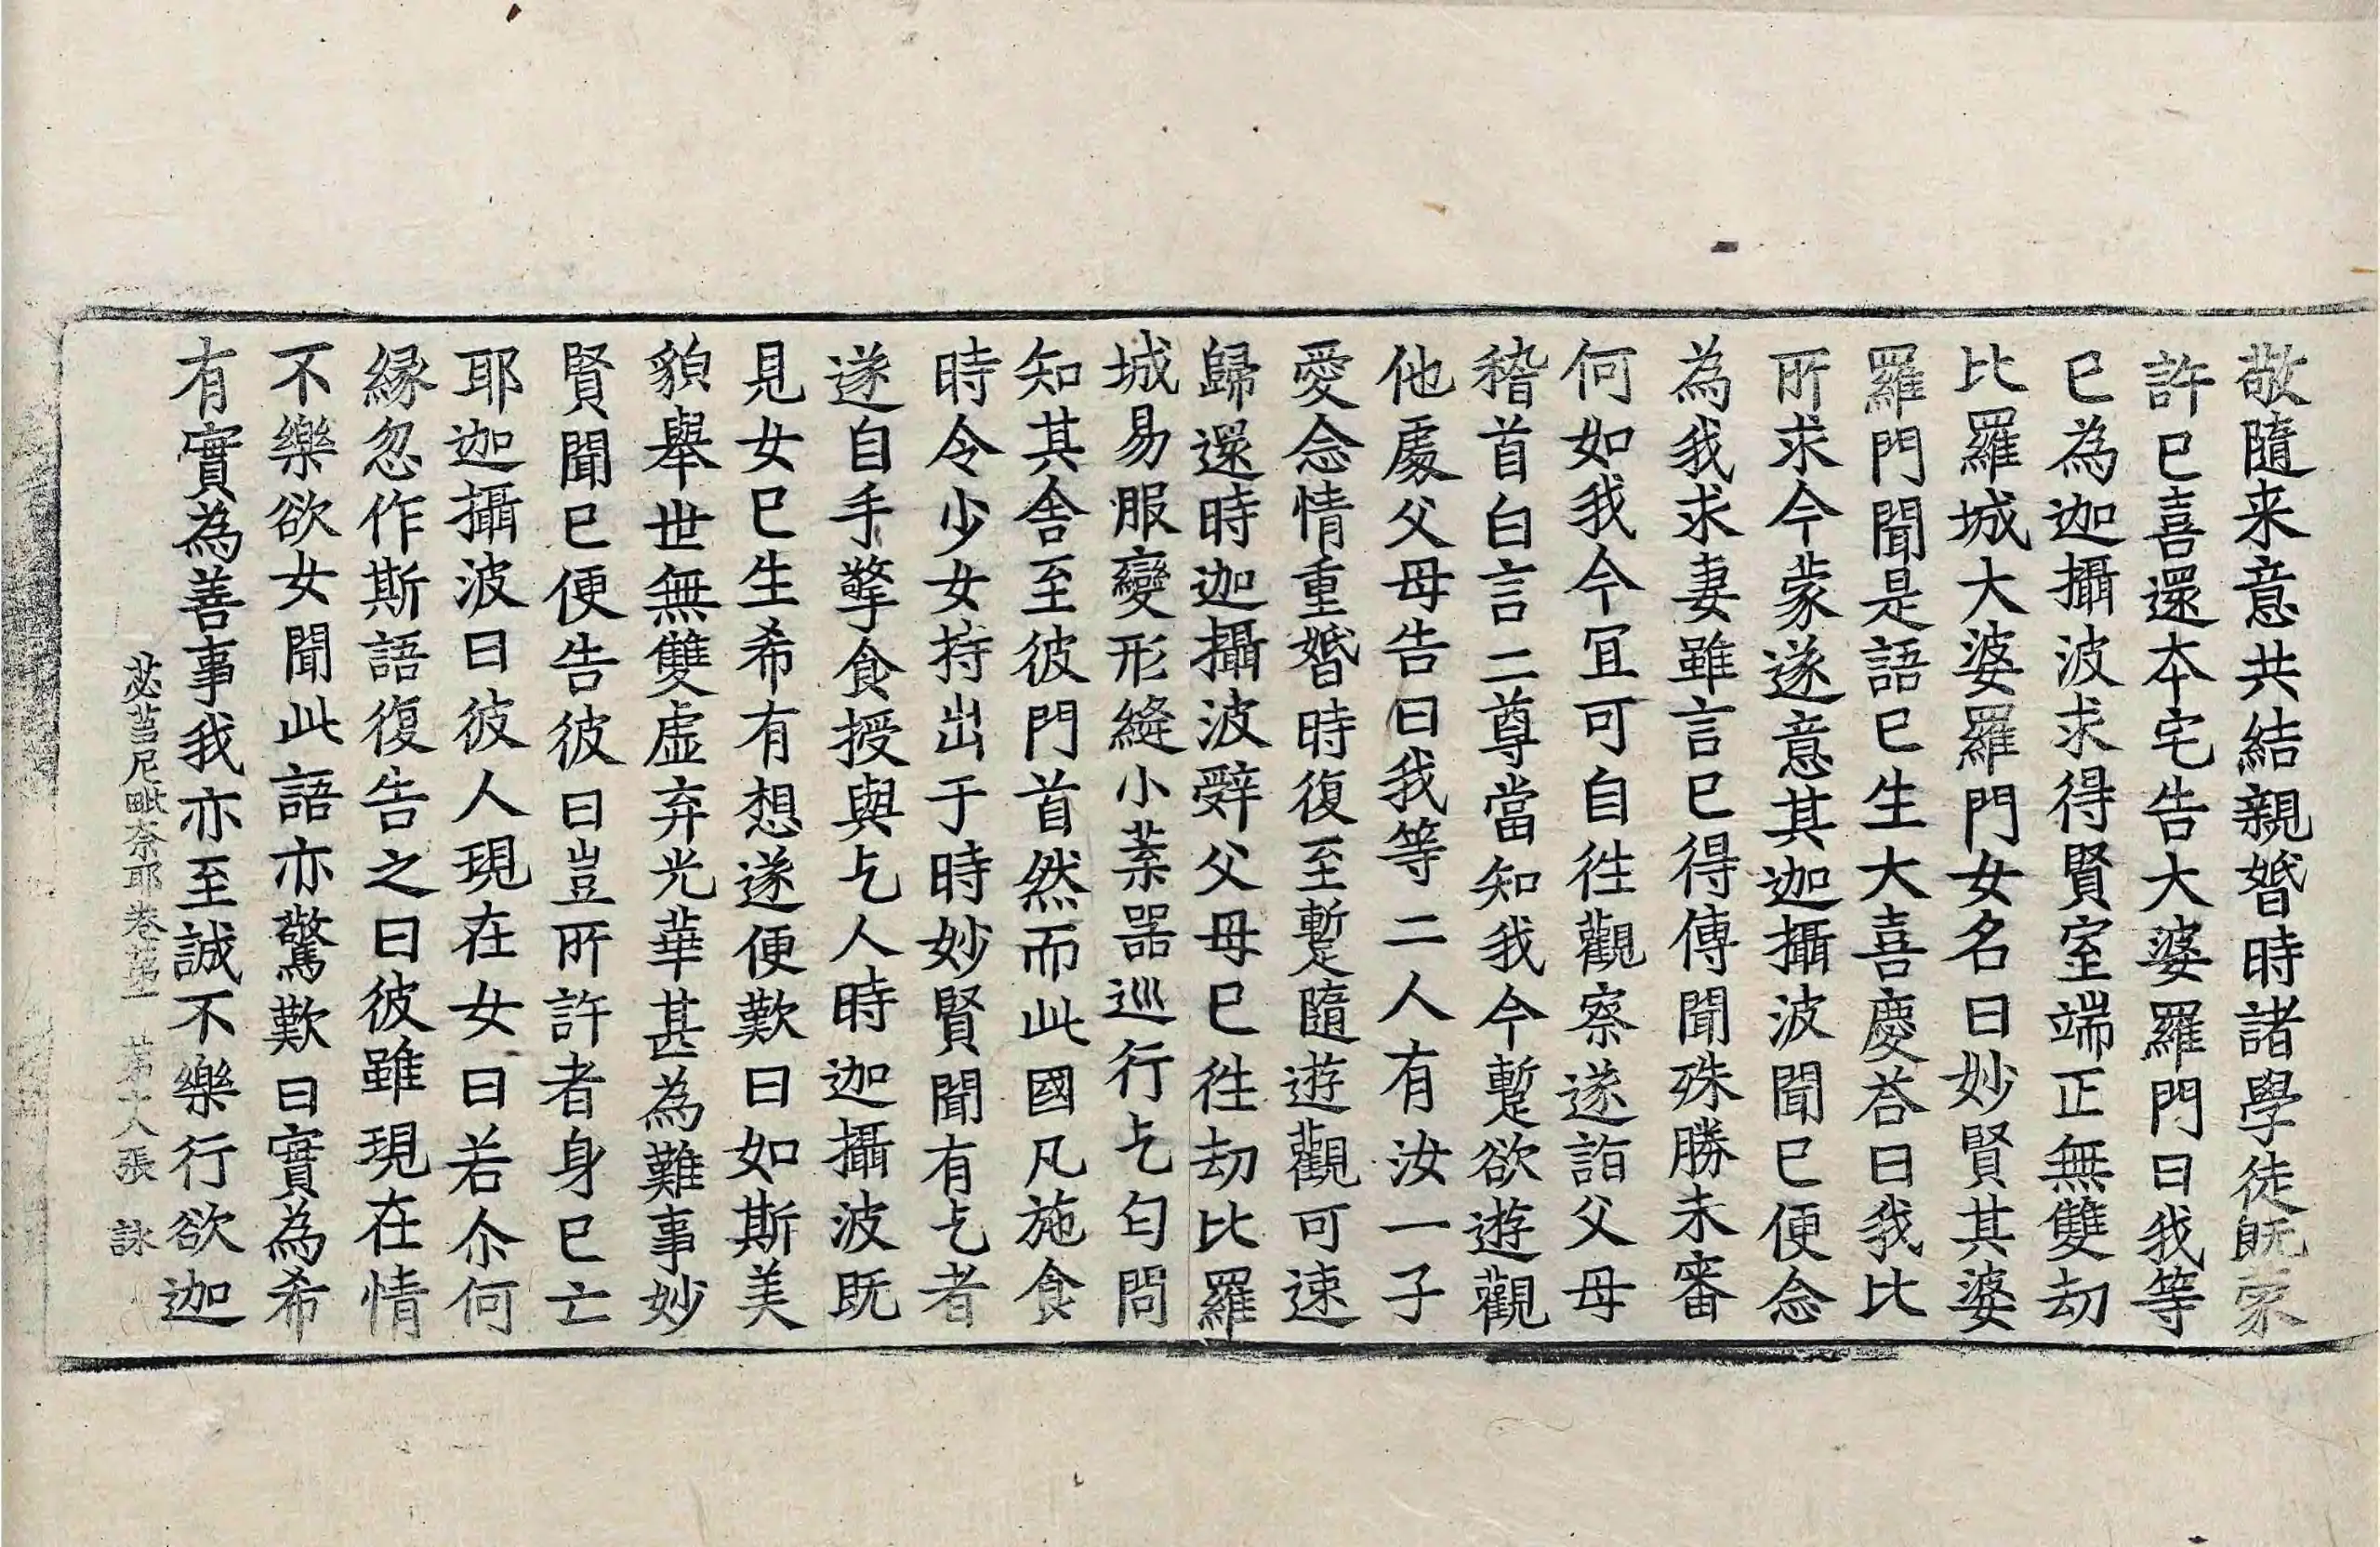 敬隨来意共結親婚時諸學徒既蒙
許巳喜還本宅告大婆羅門曰我等
巳為迦攝波求得賢室端正無雙劫
比羅城大婆羅門女名曰妙賢其婆
羅門聞是語巳生大喜慶荅曰我比
所求今蒙遂意其迦攝波聞巳便念
為我求妻雖言巳得傳聞殊勝未審
何如我今冝可自徃觀察遂詣父母
稽首白言二尊當知我今蹔欲遊觀
他處父母告曰我等二人有汝一子
愛念情重婚時復至蹔隨遊觀可速
歸還時迦攝波辤父母巳徃劫比羅
城易服變形縫小葉器巡行乞匄問
知其舍至彼門首然而此國凡施食
時令少女持出于時妙賢聞有乞者
遂自手擎食授與乞人時迦攝波既
見女巳生希有想遂便歎曰如斯美
貌舉世無雙虛弃光華甚為難事妙
賢聞巳便告彼曰豈所許者身巳亡
耶迦攝波曰彼人現在女曰若尒何
緣忽作斯語復告之曰彼雖現在情
不樂欲女聞此語亦驚歎曰實為希
有實為善事我亦至誠不樂行欲迦
苾蒭尼毗奈耶卷第一　第十八張　詠